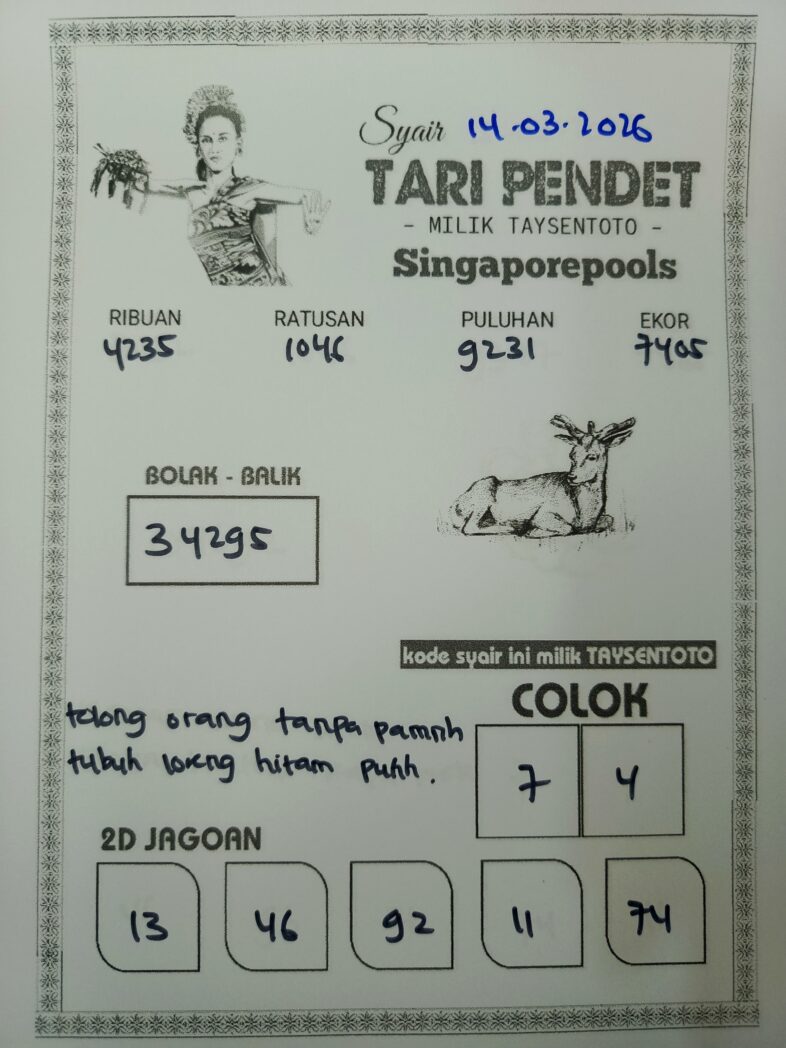 Syair 14.03.2026
TARI PENDET
- MILIK TAYSENTOTO -
Singaporepools
RIBUAN RATUSAN PULUHAN EKOR
4235 1046 9231 7405
BOLAK - BALIK
34295
kode syair ini milik TAYSENTOTO
COLOK
7 4
tolong orang tanpa pamrih
tubuh loreng hitam putih.
2D JAGOAN
13 46 92 11 74